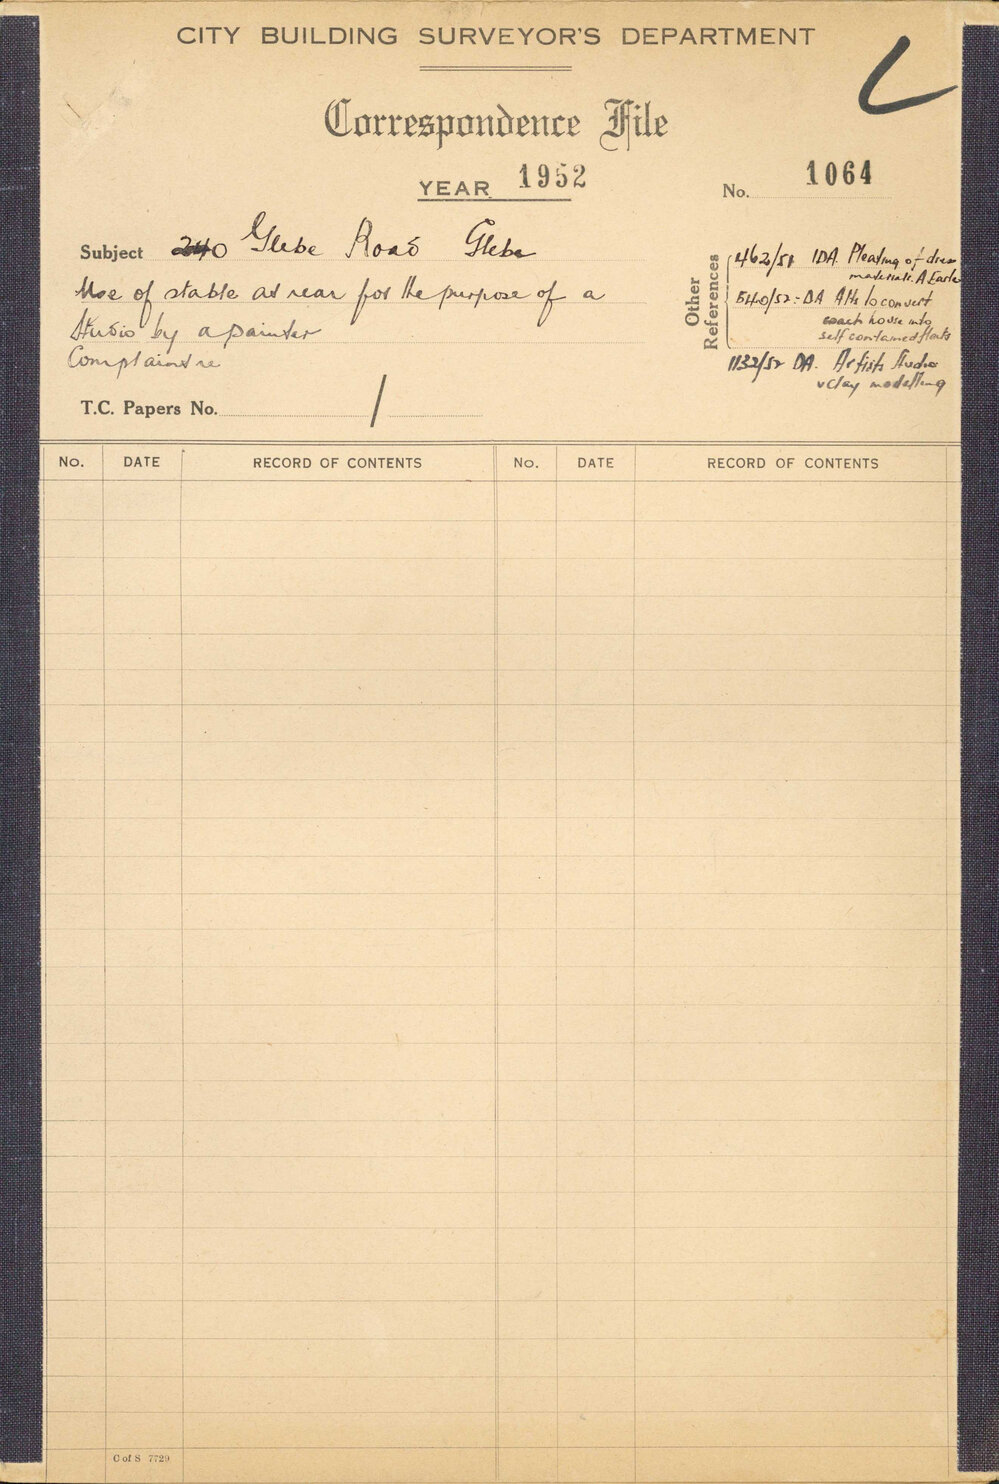 CITY BUILDING SURVEYOR'S DEPARTMENT
Correspondence File
YEAR 1952
No. 1064
Subject 240 Glebe Road Glebe
Use of stable at rear for the purpose of a
Studio by a painter
Complaint re
T.C. Papers No. /
Other References
462/51 IDA. Pleating of dress
materials. A Earle
540/52:- DA Alts to convert
each house into
self contained flats
1132/52 DA. Artists Studio
& clay modelling
No. DATE RECORD OF CONTENTS No. DATE RECORD OF CONTENTS
C of S 7729